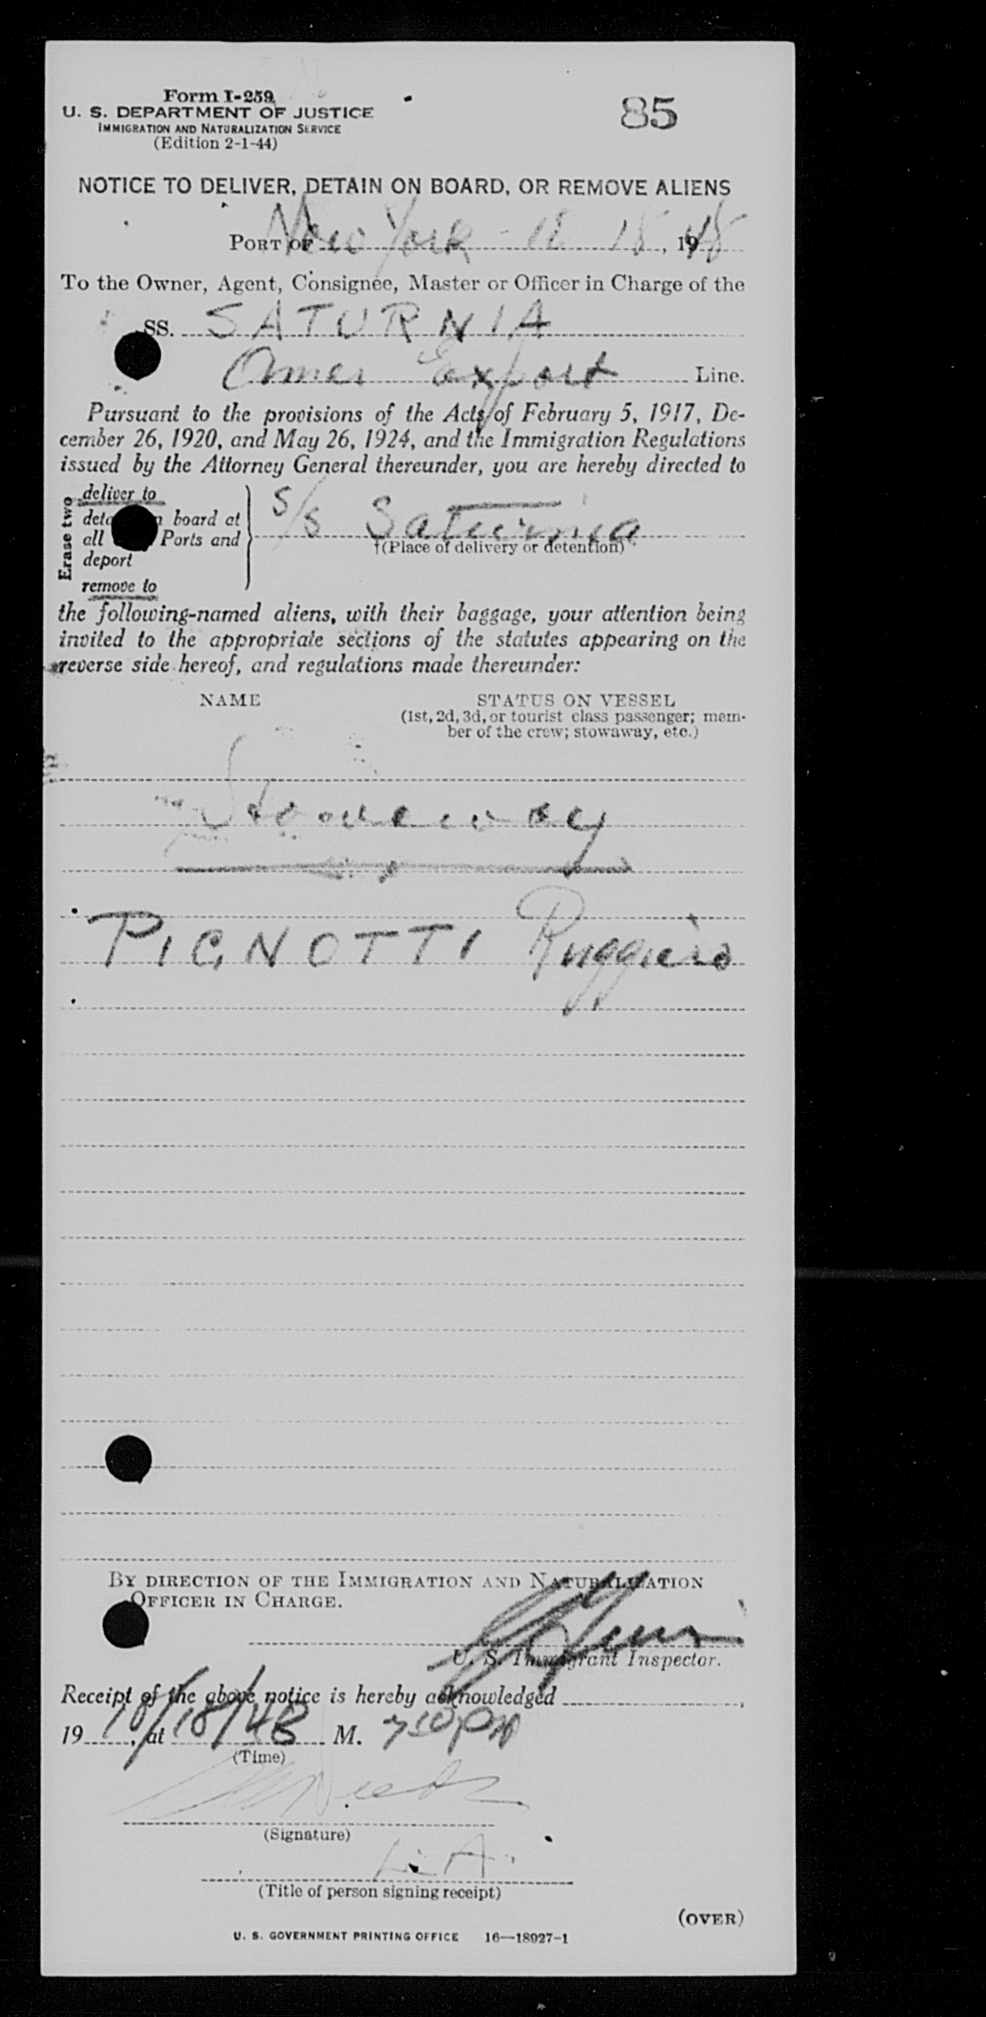 Form I-259
85
U. S. DEPARTMENT OF JUSTICE
IMMIGRATION AND NATURALIZATION SERVICE
(Edition 2-1-44)
NOTICE TO DELIVER, DETAIN ON BOARD, OR REMOVE ALIENS
PORT OF New York - 18, 1948
To the Owner, Agent, Consignee, Master or Officer in Charge of the
SS. SATURNIA
Amer Export Line.
Pursuant to the provisions of the Acts of February 5, 1917, De-
cember 26, 1920, and May 26, 1924, and the Immigration Regulations
issued by the Attorney General thereunder, you are hereby directed to
Erase two
deliver to
board at
all Ports and
deport
remove to
S/S Saturnia
†(Place of delivery or detention)
the following-named aliens, with their baggage, your attention being
invited to the appropriate sections of the statutes appearing on the
reverse side hereof, and regulations made thereunder:
NAME STATUS ON VESSEL
(1st, 2d, 3d, or tourist class passenger; mem-
ber of the crew; stowaway, etc.)
Stowaway
PIGNOTTI Ruggiero
BY DIRECTION OF THE IMMIGRATION AND NATURALIZATION
OFFICER IN CHARGE.
U. S. Immigrant Inspector.
Receipt of the above notice is hereby acknowledged ,
19 10/18/48, at M. 710 PM
(Time)
(Signature)
(Title of person signing receipt)
(OVER)
U. S. GOVERNMENT PRINTING OFFICE 16—18927-1